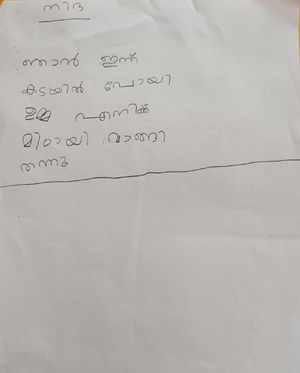 നിദ
ഞാൻ ഇന്ന്
കടയിൽ പോയി
ഉമ്മ എനിക്ക്
മിഠായി വാങ്ങി
തന്നു